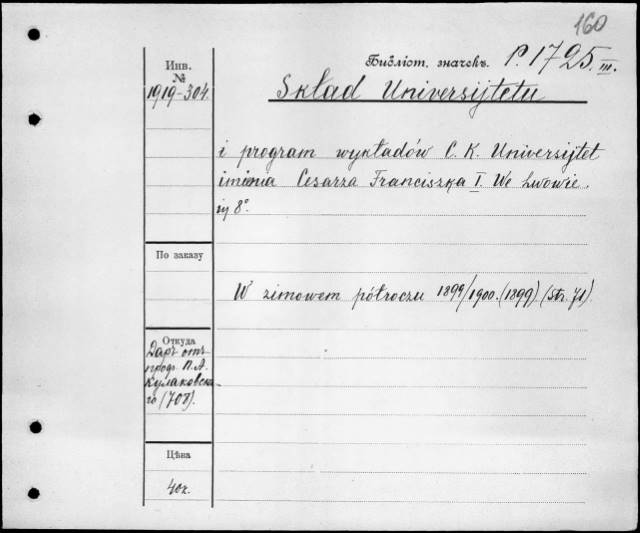 160
Библіот. значекъ. P. 1725. III.
Инв.
№
1919-304.
Skład Universijtetu
i program wykładów C. K. Universijtet
imienia Cesarza Franciszka I. We Lwowie.
in 8°.
По заказу
W zimowem półroczu 1899/1900. (1899) (str. 71).
Откуда
Даръ отъ
проф. П. А.
Кулаковска-
го (708).
Цѣна
40к.